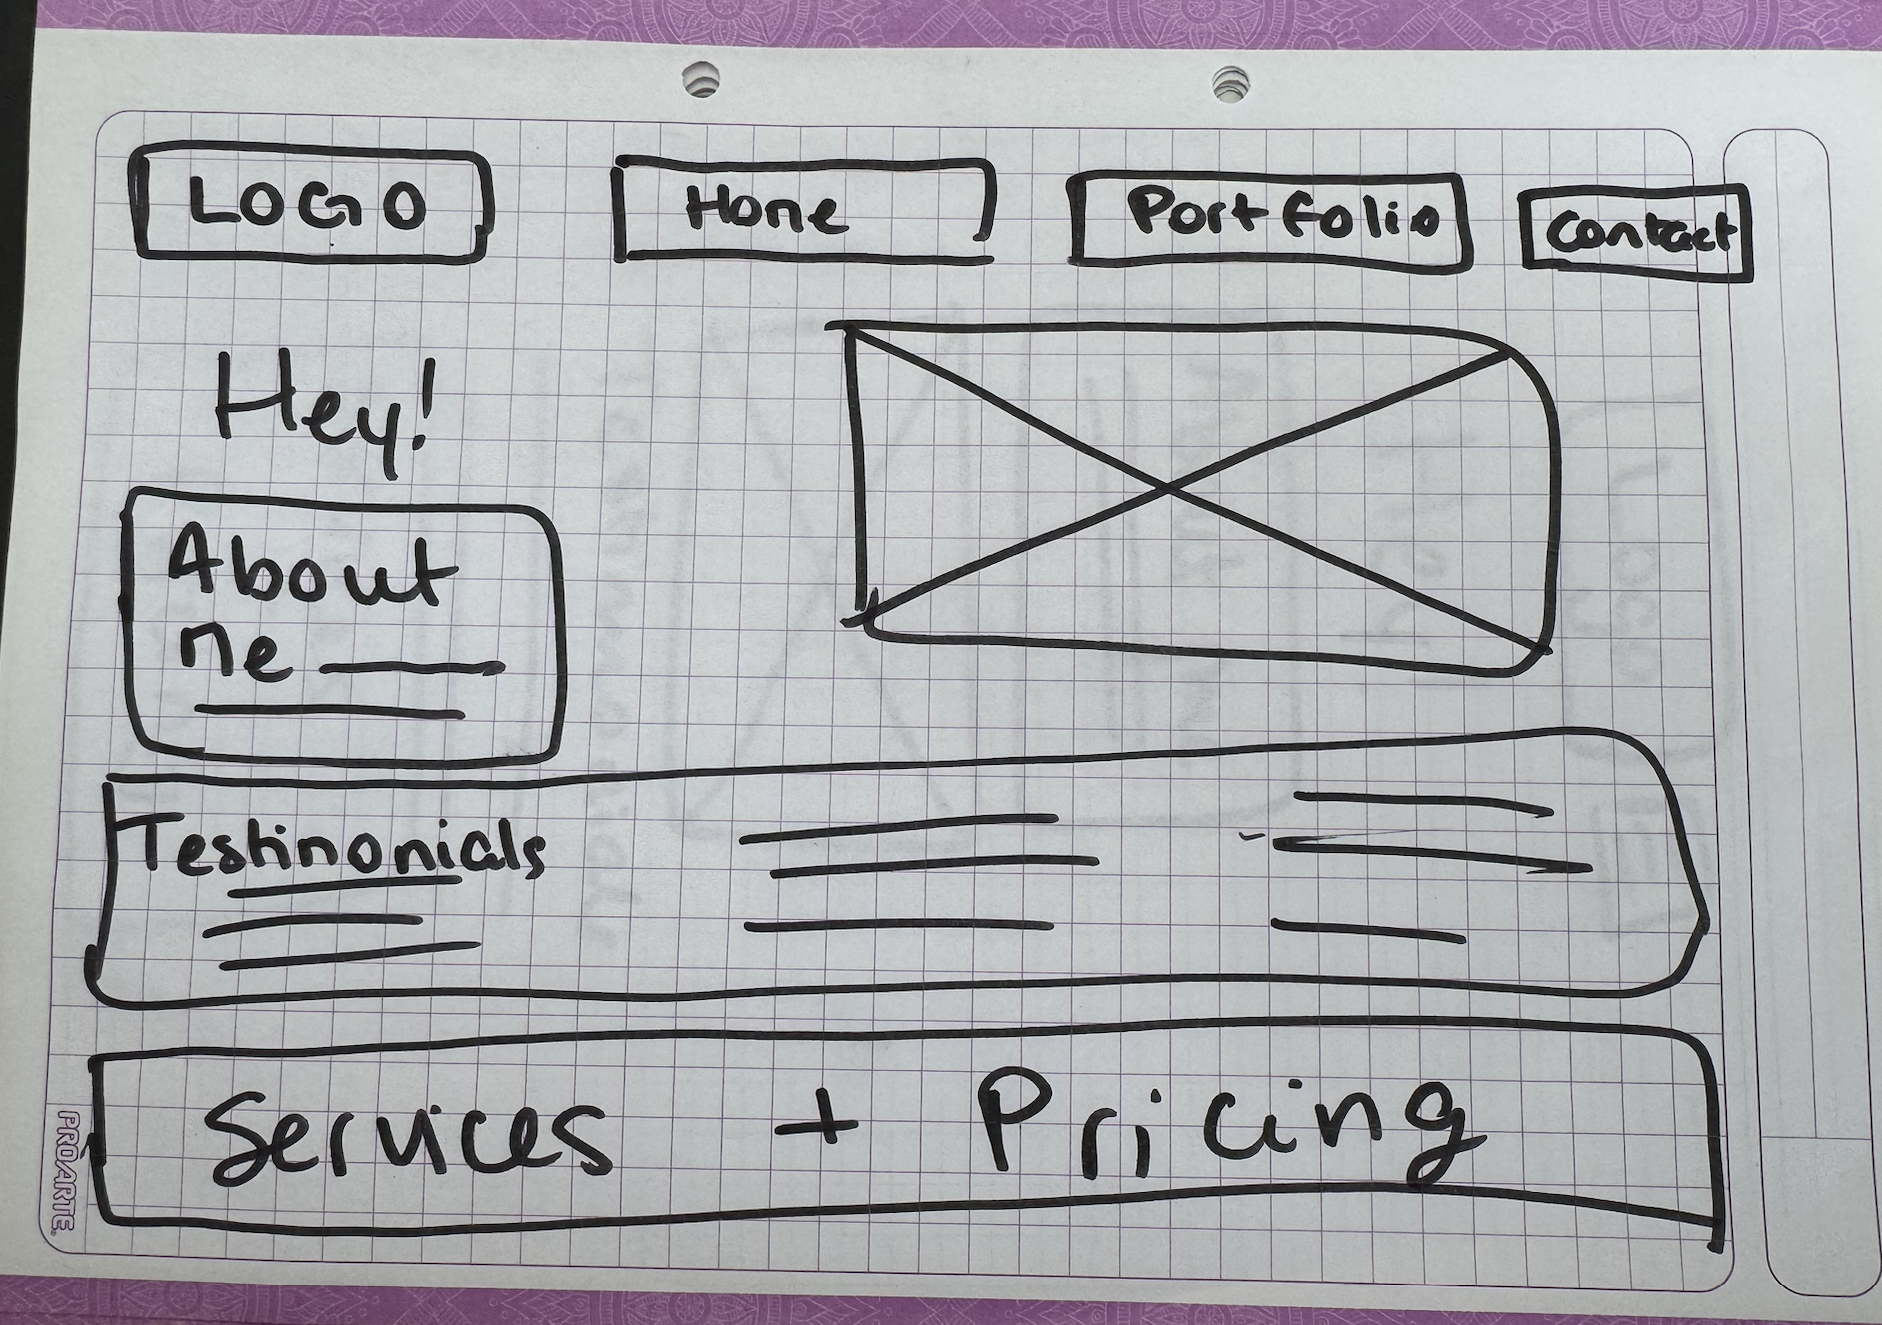 LOGO
Home
Portfolio
Contact
Hey!
About
me
Testimonials
Services + Pricing
PROARTE.